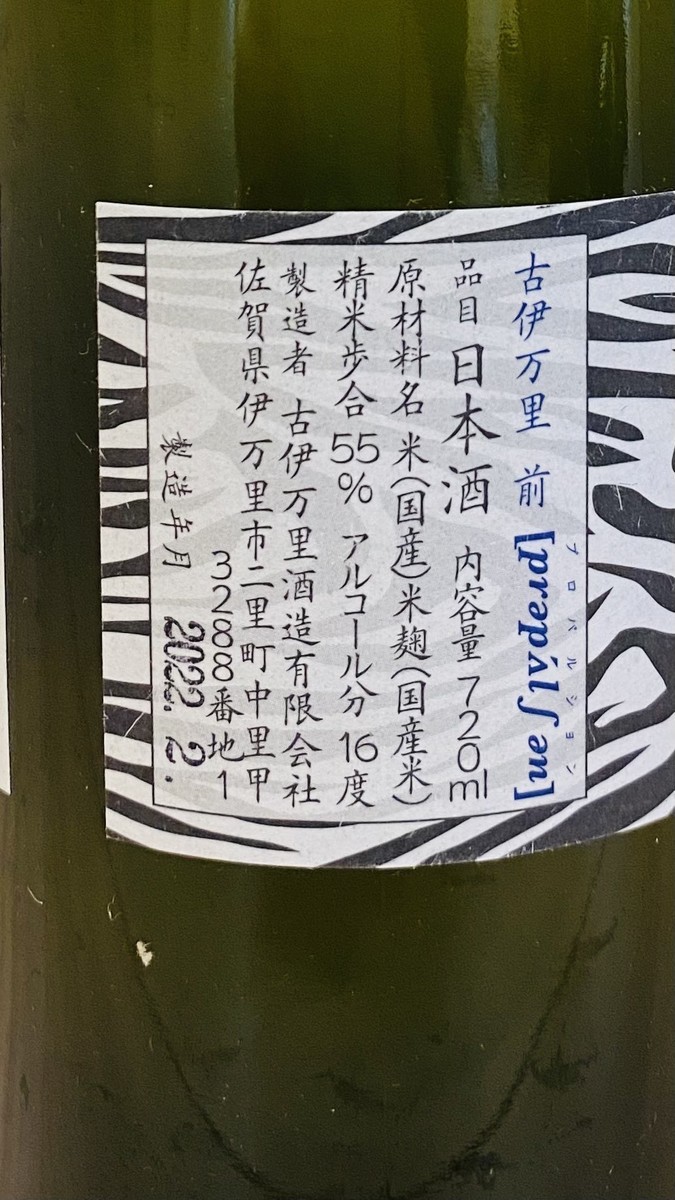 古伊万里 前 [prəpʌ́lʃən]
プロパルション
品目 日本酒 内容量 720ml
原材料名 米(国産)米麹(国産米)
精米歩合 55% アルコール分 16度
製造者 古伊万里酒造有限会社
佐賀県伊万里市二里町中里甲
3288番地1
製造年月 2022. 2.